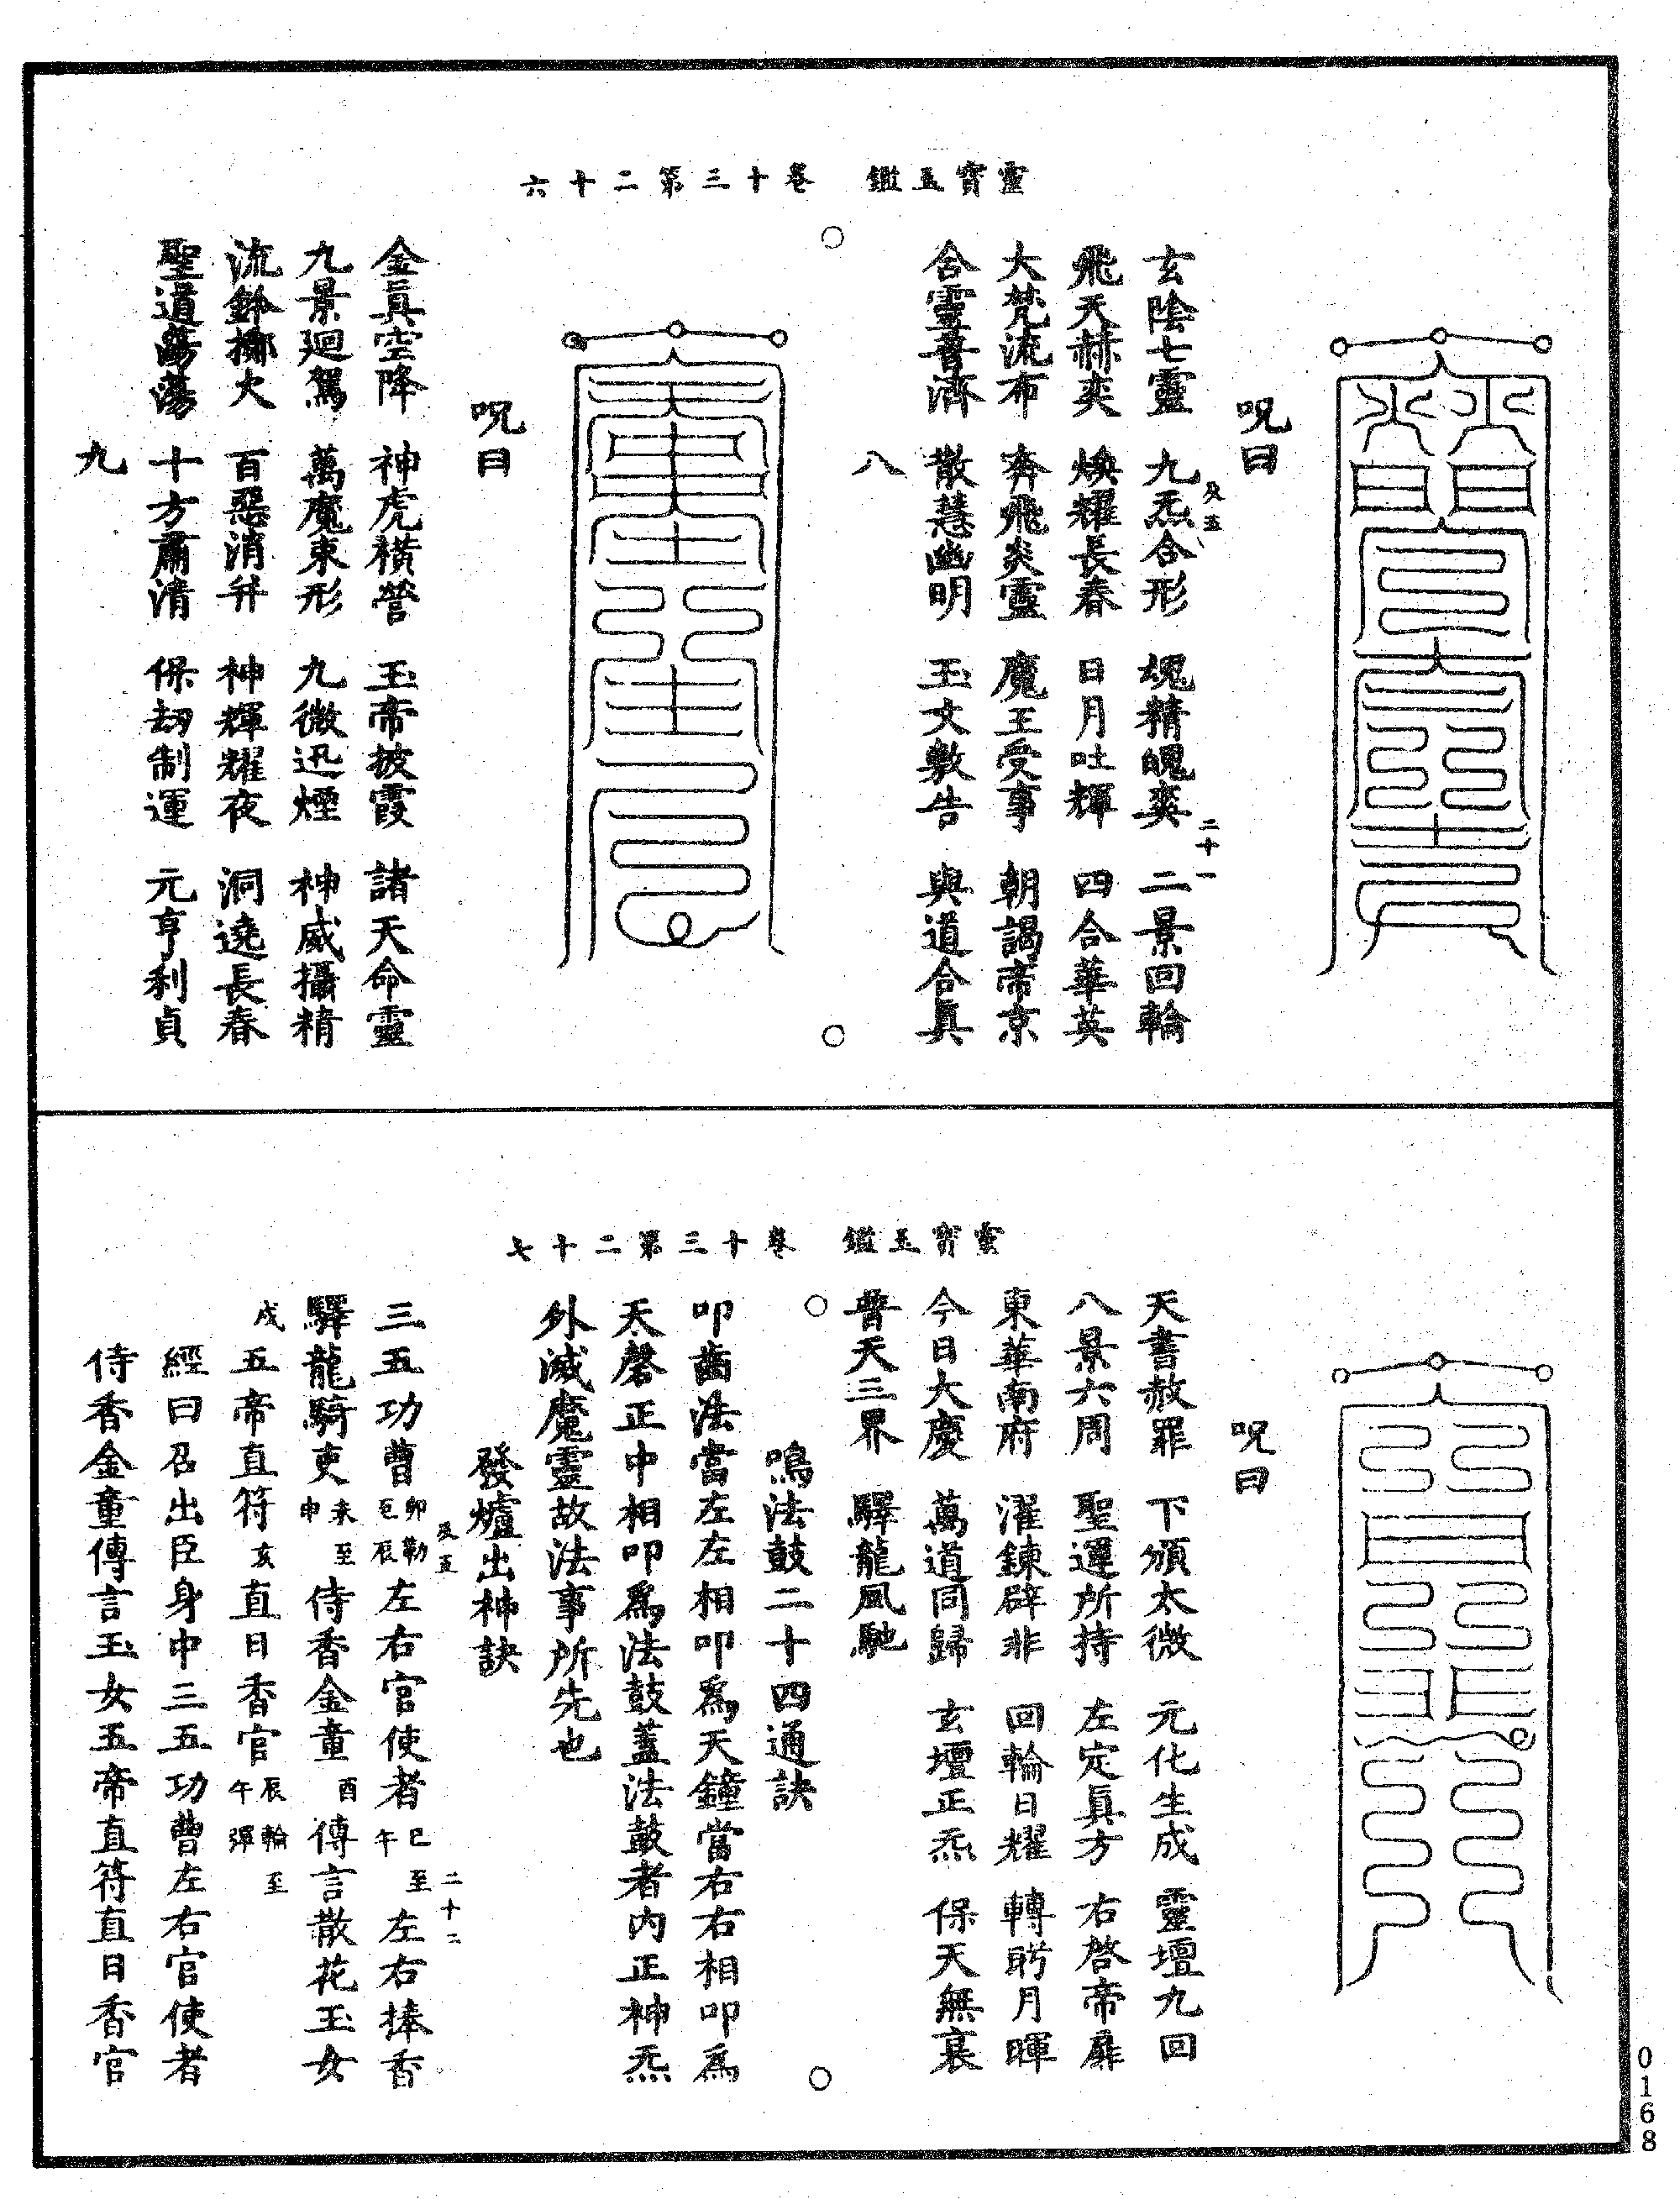 靈寶玉鑑　卷十三第二十六
呪曰
玄陰七靈　九炁合形　魂精魄爽　二景回輪
及五　二十一
飛天赫奕　煥耀長春　日月吐輝　四合華英
大梵流布　奔飛炎靈　魔王受事　朝謁帝京
合靈普濟　散慧幽明　玉文敷告　與道合真
八
○　○
呪曰
金真空降　神虎橫營　玉帝披霞　諸天命靈
九景廻駕　萬魔束形　九微迅煙　神威攝精
流鈴擲火　百惡消并　神輝耀夜　洞遶長春
聖道蕩蕩　十方肅清　保劫制運　元亨利貞
九
靈寶玉鑑　卷十三第二十七
呪曰
天書赦罪　下頒太微　元化生成　靈壇九回
八景六周　聖運所持　左定真方　右啓帝扉
東華南府　濯鍊辟非　回輪日耀　轉盼月暉
今日大慶　萬道同歸　玄壇正炁　保天無衰
普天三界　驛龍風馳
○　○
鳴法鼓二十四通訣
叩齒法當左左相叩爲天鐘當右右相叩爲
天磬正中相叩爲法鼓蓋法鼓者内正神炁
外滅魔靈故法事所先也
發爐出神訣
及五　二十二
三五功曹卯勒辰左右官使者巳至午左右捧香
驛龍騎吏未至申侍香金童酉傳言散花玉女
戌五帝直符亥直日香官辰輪至午彈
經曰召出臣身中三五功曹左右官使者
侍香金童傳言玉女五帝直符直日香官
0168